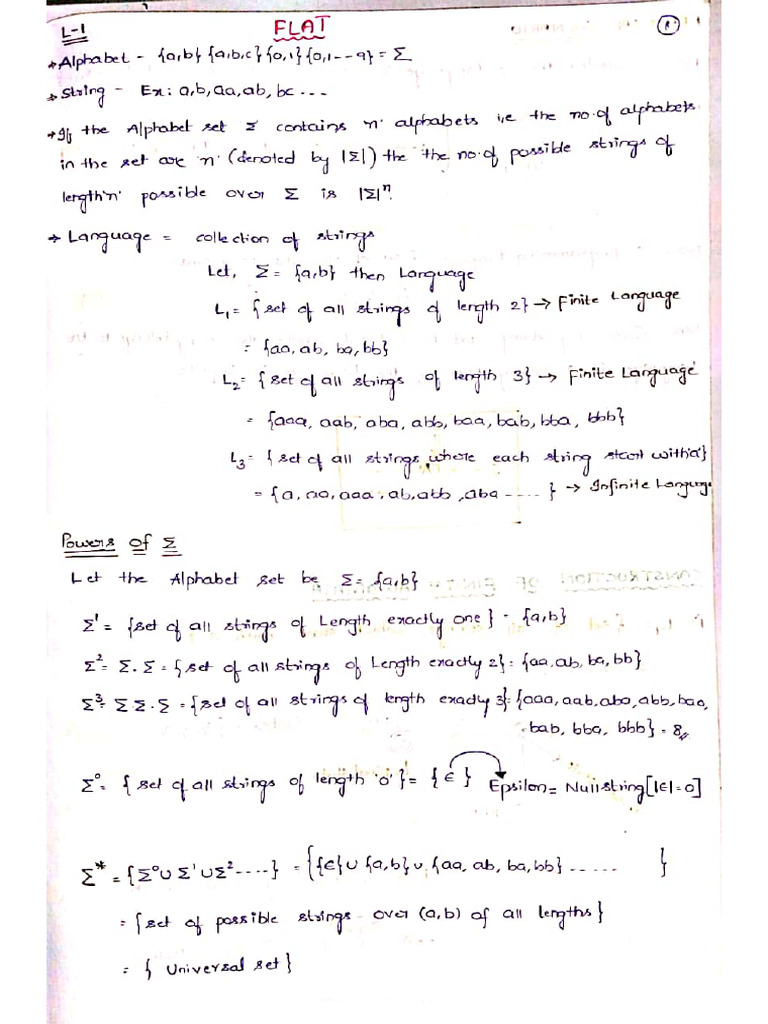 L-1 FLAT 1
→ Alphabet - {a,b} {a,b,c} {0,1} {0,1--9} = Σ
→ String - Ex: a,b,aa,ab, bc ...
→ If the Alphabet set Σ contains 'n' alphabets i.e the no.of alphabets
in the set are 'n' (denoted by |Σ|) the the no.of possible strings of
length 'n' possible over Σ is |Σ|ⁿ.
→ Language = collection of strings
Let, Σ = {a,b} then Language
L₁ = {set of all strings of length 2} → Finite Language
= {aa, ab, ba, bb}
L₂ = {set of all strings of length 3} → Finite Language
= {aaa, aab, aba, abb, baa, bab, bba, bbb}
L₃ = {set of all strings, where each string start with 'a'}
= {a, aa, aaa, ab, abb, aba ----- } → Infinite Language
Powers of Σ
Let the Alphabet set be Σ = {a,b}
Σ¹ = {set of all strings of Length exactly one} = {a,b}
Σ² = Σ.Σ = {set of all strings of Length exactly 2} = {aa,ab, ba, bb}
Σ³ = Σ Σ.Σ = {set of all strings of length exactly 3} = {aaa, aab, aba, abb, baa,
bab, bba, bbb} = 8
Σ⁰ = {set of all strings of length '0'} = {ϵ} Epsilon = Null string [|ϵ|=0]
Σ* = {Σ⁰∪ Σ¹ ∪Σ² ----} = {{ϵ}∪ {a,b}∪ {aa, ab, ba, bb} - ..... }
= {set of possible strings over (a,b) of all lengths}
= { Universal set}